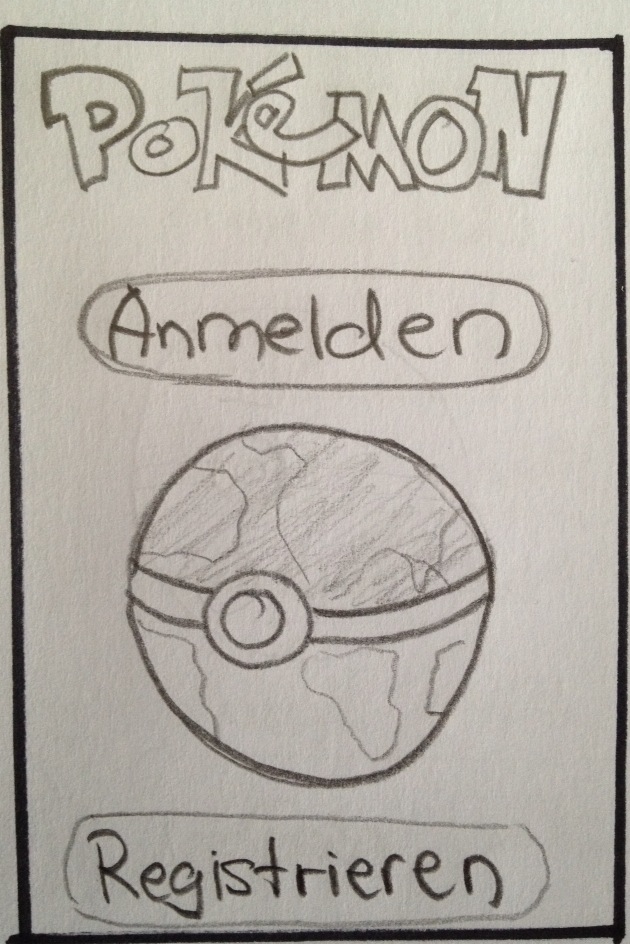 POKéMON
Anmelden
Registrieren